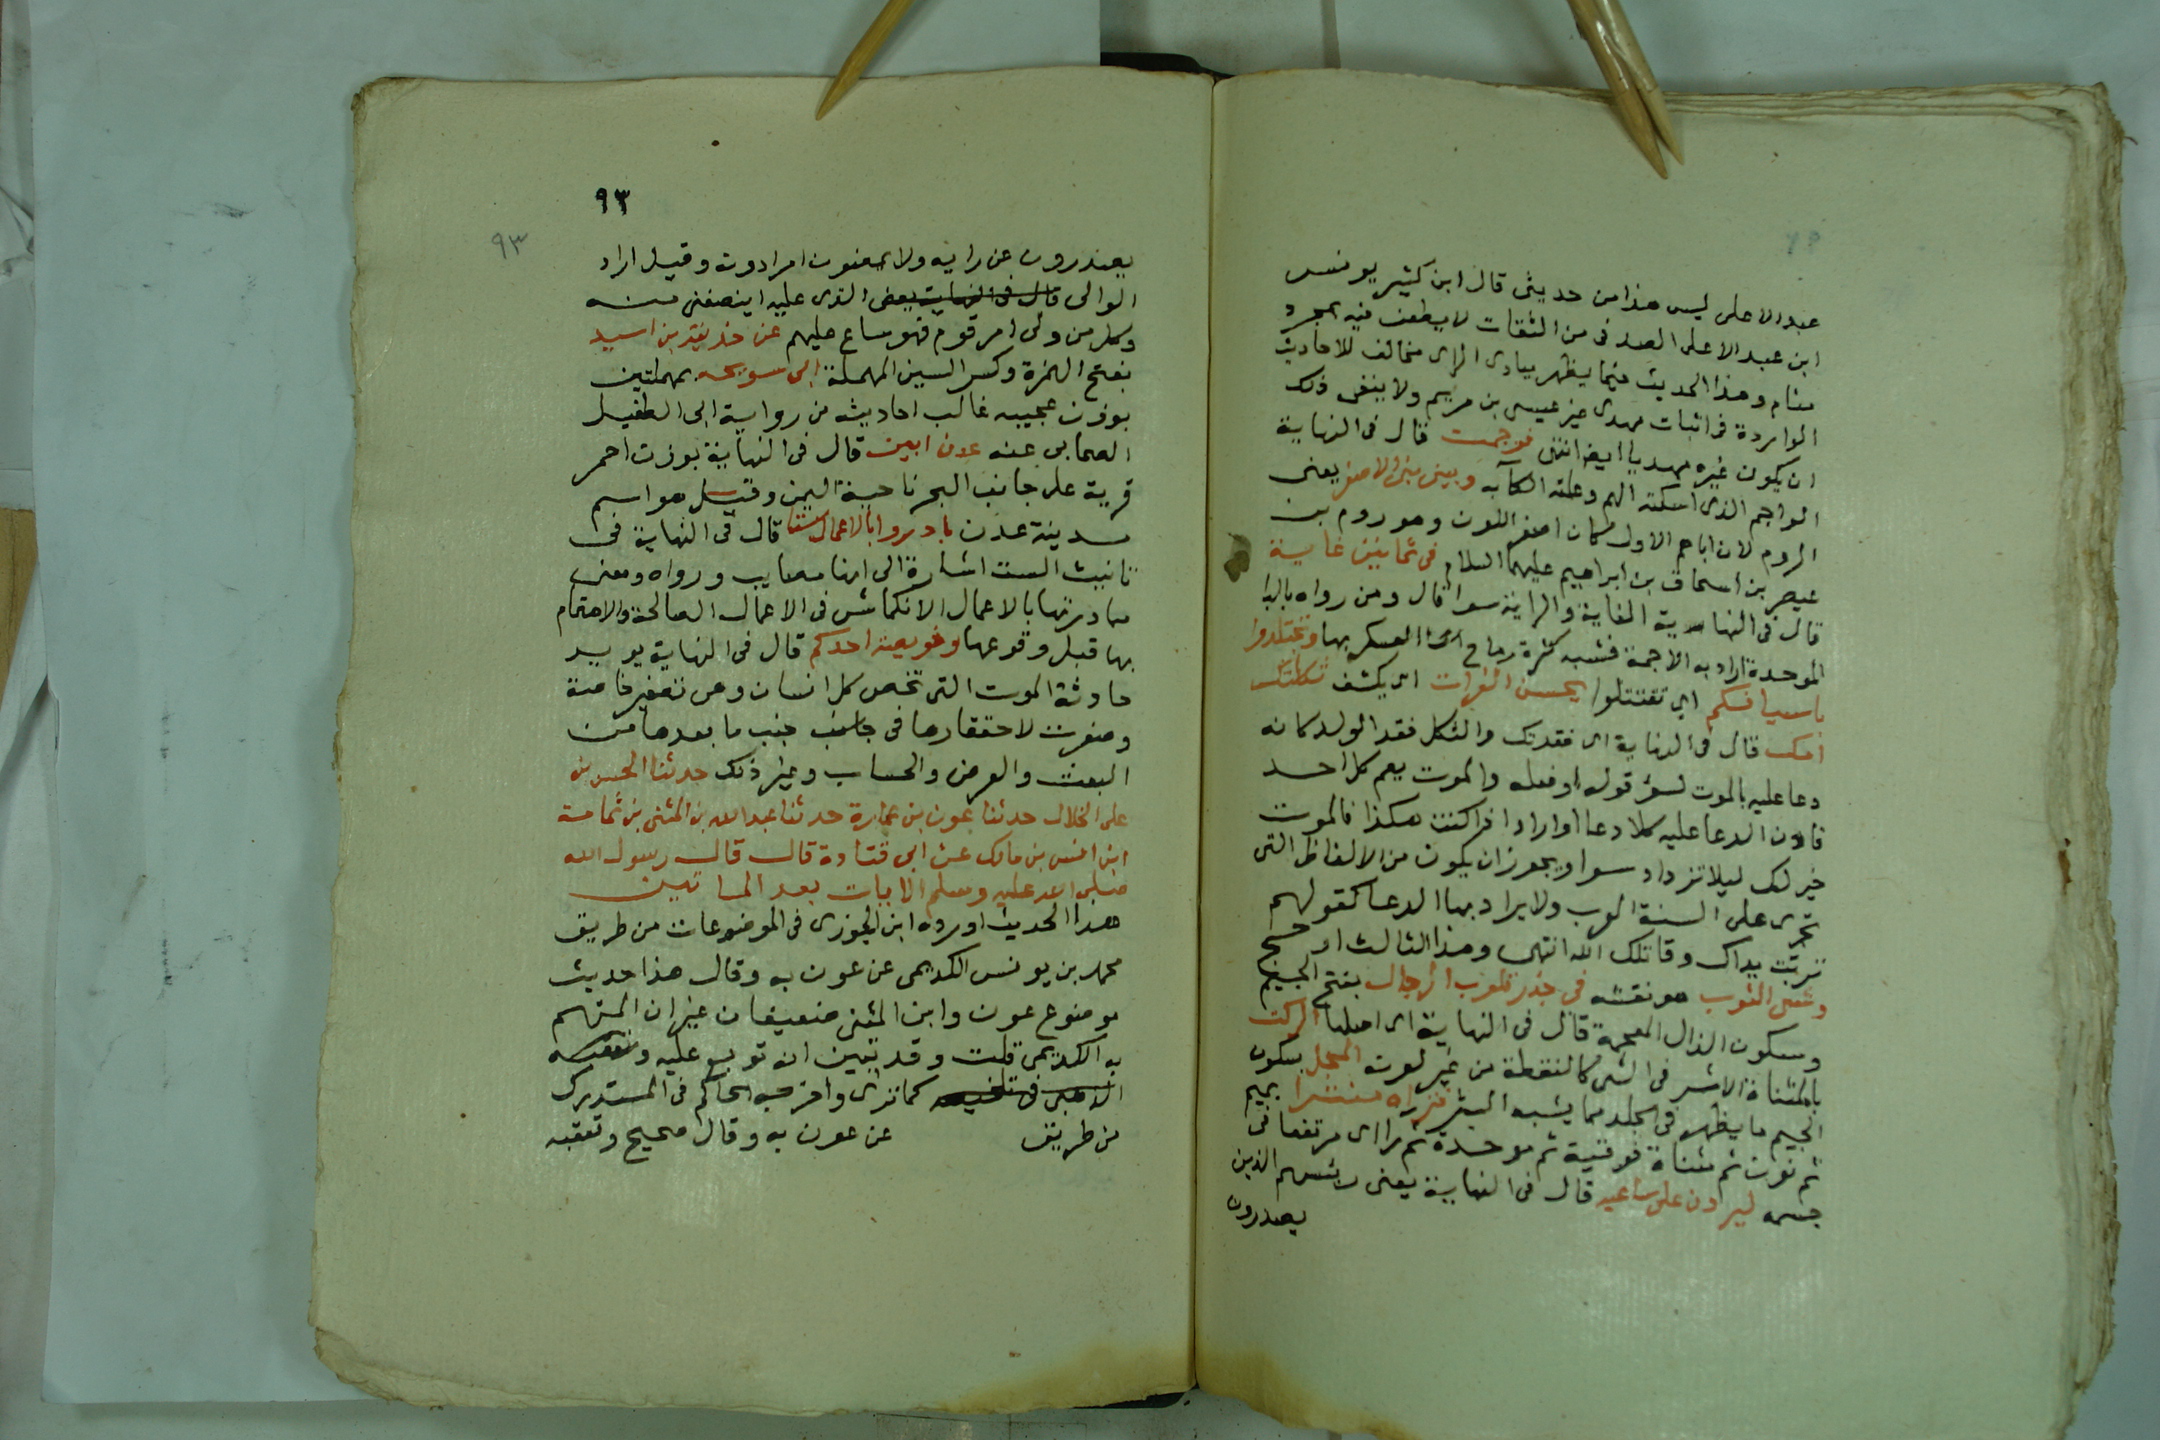 عبد الاعلى ليس هذا من حديثى قال ابن كثير يونس
ابن عبد الاعلى الصدفى من الثقات لا يطعن فيه بمجرد
منام وهذا الحديث فيما يظهر ببادى الراى مخالف للاحاديث
الواردة فى اثبات مهدى غير عيسى بن مريم ولا ينفى ذلك
ان يكون غيره مهديا ايضا انتهى فوجمت قال فى النهاية
الواجم الذى اسكته الهم وعلته الكآبه وبين بنى الاصفر يعنى
الروم لان اباهم الاول كان اصفر اللون وهو روم بن
عيصر بن اسحاق بن ابراهيم عليهما السلام فى ثمانين غاية
قال فى النهاية الغاية والراية سوا قال ومن رواه بالبا
الموحدة اراد به الاجمة فشبه كثرة رماح العسكر بها وتجتلدوا
باسيافكم اي تقتتلوا يحسر الفرات اى يكشف ثكلتك
امك قال فى النهاية اى فقدتك والثكل فقد الولد كانه
دعا عليه بالموت لسؤ قوله او فعله والموت يعم كل احد
فاذن الدعا عليه كلا دعا او اراد اذا كنت هكذا فالموت
خير لك ليلا تزداد سوا ويجوز ان يكون من الالفاظ التى
تجرى على السنة العرب ولا يراد بها الدعا كقولهم
تربت يداك وقاتلك الله انتهى وهذا الثالث ارجح
وشى الثوب هو نقشه فى جذر قلوب الرجال بفتح الجيم
وسكون الذال المعجمة قال فى النهاية اى اصلها الوكت
بالمثناة الاثر فى الشى كالنقطة من غير لونه المجل بسكون
الجيم ما يظهر فى الجلد مما يشبه البثر فتراه منتبرا بميم
ثم نون ثم مثناة فوقية ثم موحدة ثم را اى مرتفعا فى
جسمه ليردن على ساعيه قال فى النهاية يعنى رئيسهم الذين
يصدرون
٩٣
٩٣
يصدرون عن رايه ولا يمضون امرا دونه وقيل اراد
الوالى قال فى النهاية يعنى الذى عليه اى ينصفنى منه
وكل من ولى امر قوم فهو ساع عليهم عن حذيفة بن اسيد
بفتح الهمزة وكسر السين المهملة ابى سريحه بمهملتين
بوزن عجيبه غالب احاديثه من رواية ابى الطفيل
الصحابى عنه عدن ابين قال فى النهاية بوزن احمر
قرية على جانب البحر ناحية اليمن وقيل هو اسم
مدينة عدن بادروا بالاعمال ستا قال فى النهاية فى
تانيث الست اشارة الى انها مصايب ودواه ومعنى
مبادرتها بالاعمال الانكماش فى الاعمال الصالحة والاهتمام
بها قبل وقوعها وخويصة احدكم قال فى النهاية يريد
حادثة الموت التى تخص كل انسان وهى تصغير خاصة
وصغرت لاحتقارها فى جانب جنب ما بعدها من
البعث والعرض والحساب وغير ذلك حدثنا الحسن بن
على الخلال حدثنا عون بن عمارة حدثنا عبد الله بن المثنى بن ثمامة
ابن انس بن مالك عن ابى قتادة قال قال رسول الله
صلى الله عليه وسلم الايات بعد الماتين
هذا الحديث اورده ابن الجوزى فى الموضوعات من طريق
محمد بن يونس الكديمى عن عون به وقال هذا حديث
موضوع عون وابن المثنى ضعيفان غير ان المتهم
به الكديمى قلت وقد تبين ان توبع عليه وتعقبه
الذهبى فى تلخيصه كما ترى واخرجه الحاكم فى المستدرك
من طريق عن عون به وقال صحيح وتعقبه